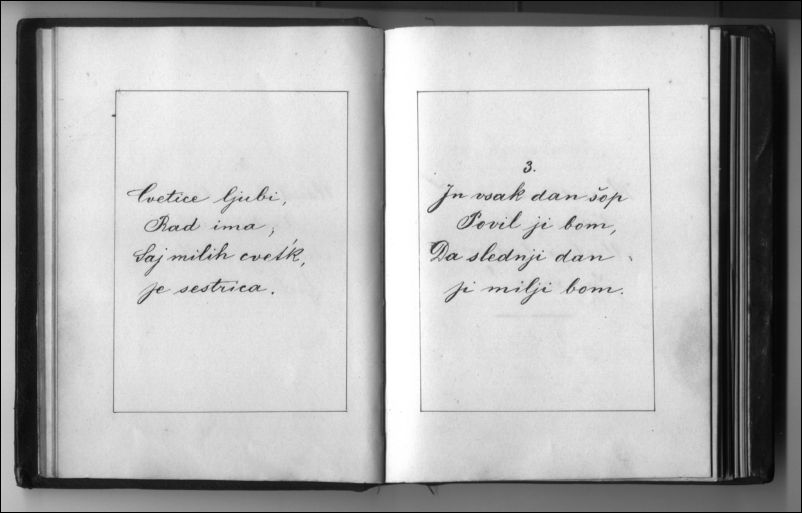 Cvetice ljubi,
Rad ima,
Saj milih cvetk,
je sestrica.
3.
In vsak dan šop
Povil ji bom,
Da slednji dan
ji milji bom.